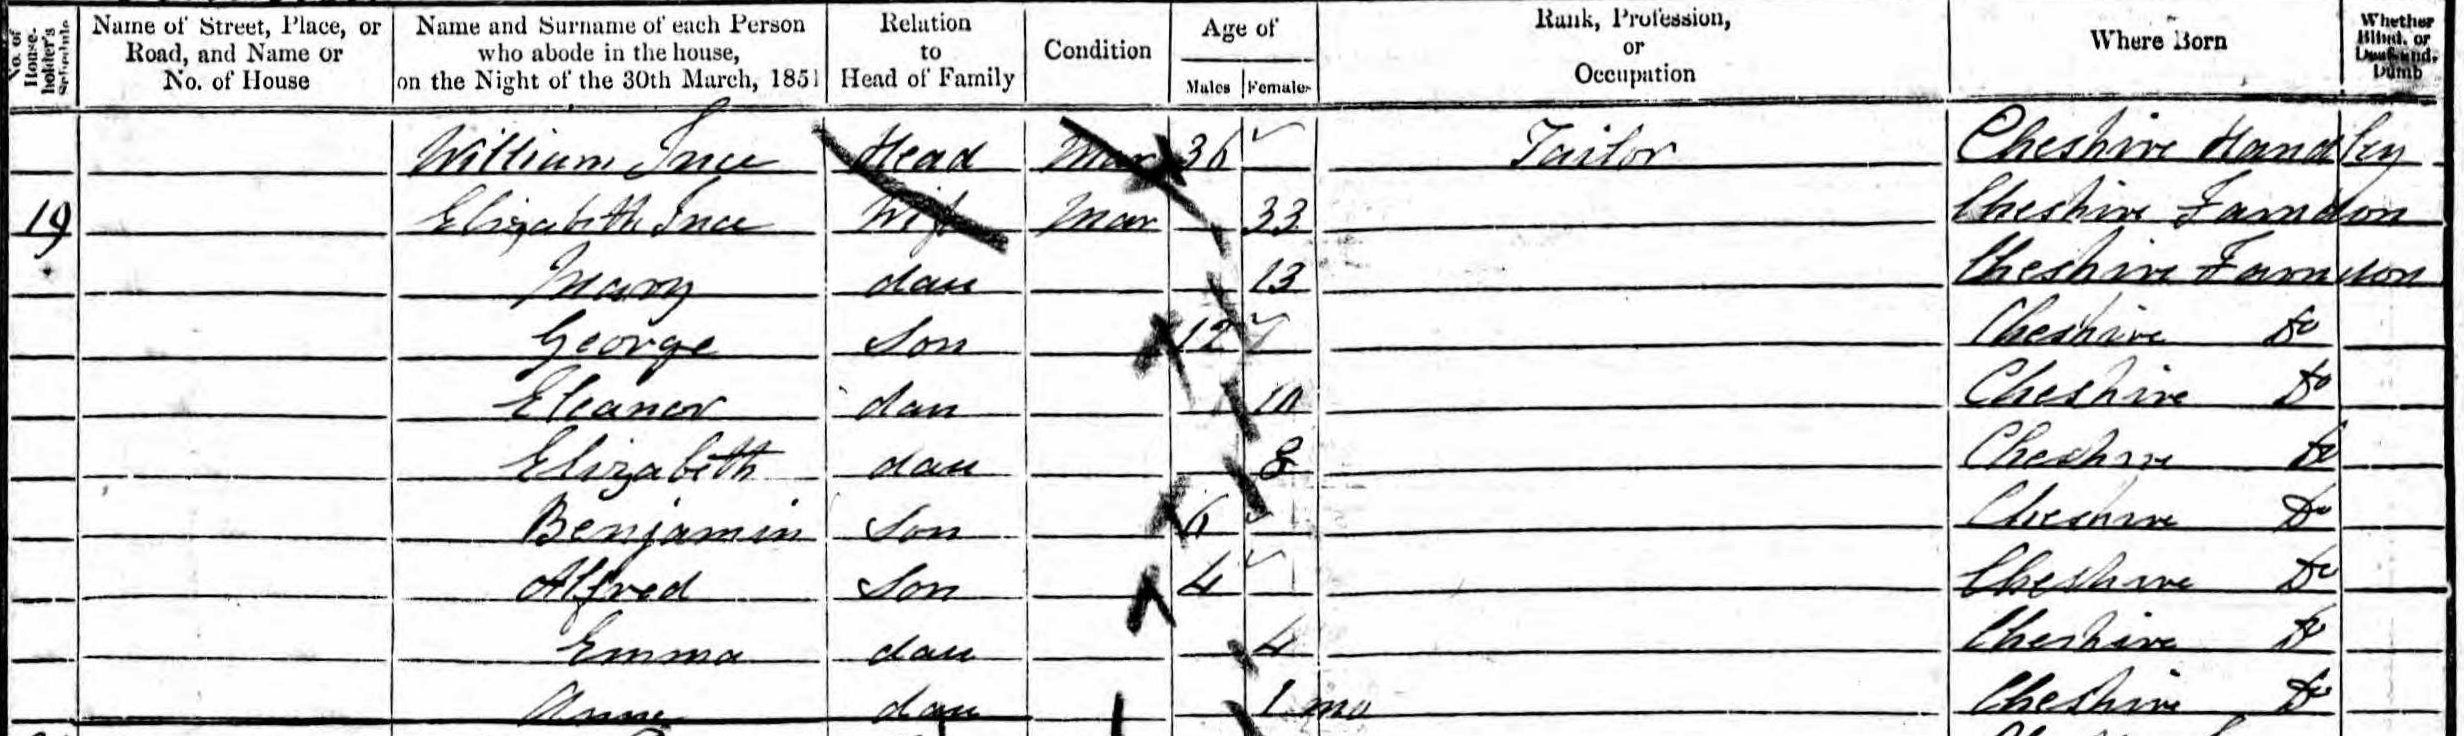 No. of House-holder's Schedule
Name of Street, Place, or Road, and Name or No. of House
Name and Surname of each Person who abode in the house, on the Night of the 30th March, 1851
Relation to Head of Family
Condition
Age of
Males Females
Rank, Profession, or Occupation
Where Born
Whether Blind, or Deaf and Dumb
William Ince Head Mar 36 Tailor Cheshire Handley
19 Elizabeth Ince Wife Mar 33 Cheshire Farndon
Mary dau 13 Cheshire Farndon
George Son 12 Cheshire Do
Eleanor dau 10 Cheshire Do
Elizabeth dau 8 Cheshire Do
Benjamin Son 6 Cheshire Do
Alfred Son 4 Cheshire Do
Emma dau 4 Cheshire Do
Anne dau 1 mo Cheshire Do